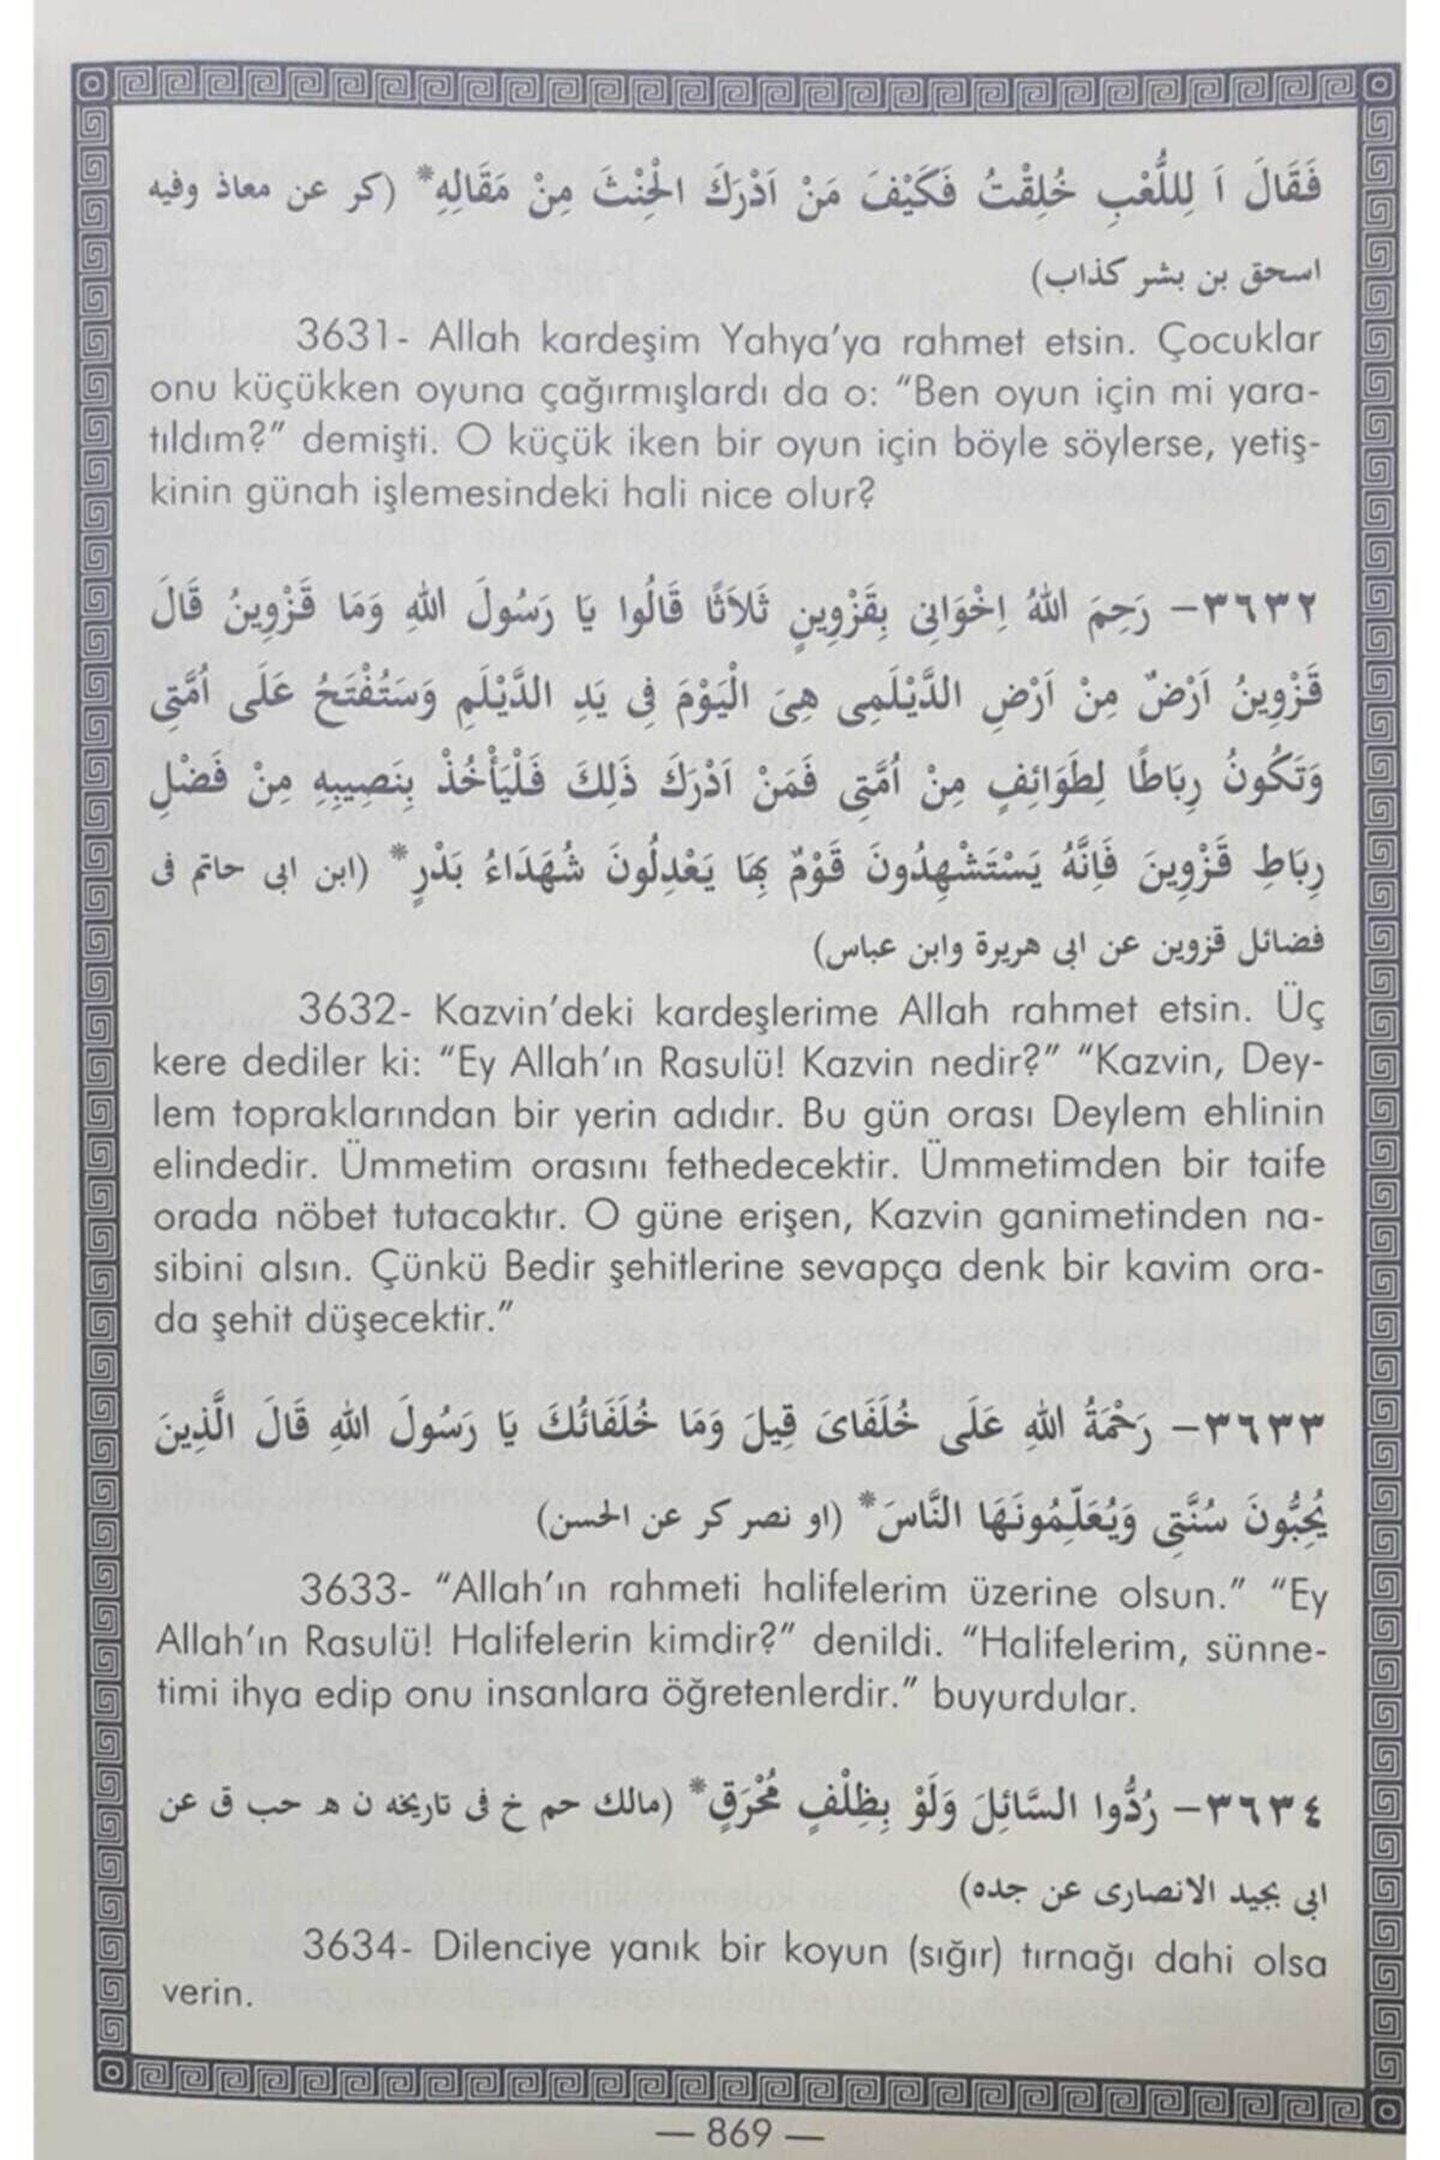 فَقَالَ اَ لِلَّعْبِ خُلِقْتُ فَكَيْفَ مَنْ اَدْرَكَ الْحِنْثَ مِنْ مَقَالِهِ* (كر عن معاذ وفيه
اسحق بن بشر كذاب)
3631- Allah kardeşim Yahya’ya rahmet etsin. Çocuklar
onu küçükken oyuna çağırmışlardı da o: “Ben oyun için mi yara-
tıldım?” demişti. O küçük iken bir oyun için böyle söylerse, yetiş-
kinin günah işlemesindeki hali nice olur?
٣٦٣٢- رَحِمَ اللهُ اِخْوَانِى بِقَزْوِينٍ ثَلاَثًا قَالُوا يَا رَسُولَ اللهِ وَمَا قَزْوِينُ قَالَ
قَزْوِينُ اَرْضٌ مِنْ اَرْضِ الدَّيْلَمِى هِىَ الْيَوْمَ فِى يَدِ الدَّيْلَمِ وَسَتُفْتَحُ عَلَى اُمَّتِى
وَتَكُونُ رِبَاطًا لِطَوَائِفٍ مِنْ اُمَّتِى فَمَنْ اَدْرَكَ ذَلِكَ فَلْيَأْخُذْ بِنَصِيبِهِ مِنْ فَضْلِ
رِبَاطِ قَزْوِينَ فَاِنَّهُ يَسْتَشْهِدُونَ قَوْمٌ بِهَا يَعْدِلُونَ شُهَدَاءُ بَدْرٍ* (ابن ابى حاتم فى
فضائل قزوين عن ابى هريرة وابن عباس)
3632- Kazvin’deki kardeşlerime Allah rahmet etsin. Üç
kere dediler ki: “Ey Allah’ın Rasulü! Kazvin nedir?” “Kazvin, Dey-
lem topraklarından bir yerin adıdır. Bu gün orası Deylem ehlinin
elindedir. Ümmetim orasını fethedecektir. Ümmetimden bir taife
orada nöbet tutacaktır. O güne erişen, Kazvin ganimetinden na-
sibini alsın. Çünkü Bedir şehitlerine sevapça denk bir kavim ora-
da şehit düşecektir.”
٣٦٣٣- رَحْمَةُ اللهِ عَلَى خُلَفَاىَ قِيلَ وَمَا خُلَفَائُكَ يَا رَسُولَ اللهِ قَالَ الَّذِينَ
يُحِبُّونَ سُنَّتِى وَيُعَلِّمُونَهَا النَّاسَ* (او نصر كر عن الحسن)
3633- “Allah’ın rahmeti halifelerim üzerine olsun.” “Ey
Allah’ın Rasulü! Halifelerin kimdir?” denildi. “Halifelerim, sünne-
timi ihya edip onu insanlara öğretenlerdir.” buyurdular.
٣٦٣٤- رُدُّوا السَّائِلَ وَلَوْ بِظِلْفٍ مُحْرَقٍ* (مالك حم خ فى تاريخه ن هـ حب ق عن
ابى بجيد الانصارى عن جده)
3634- Dilenciye yanık bir koyun (sığır) tırnağı dahi olsa
verin.
— 869 —